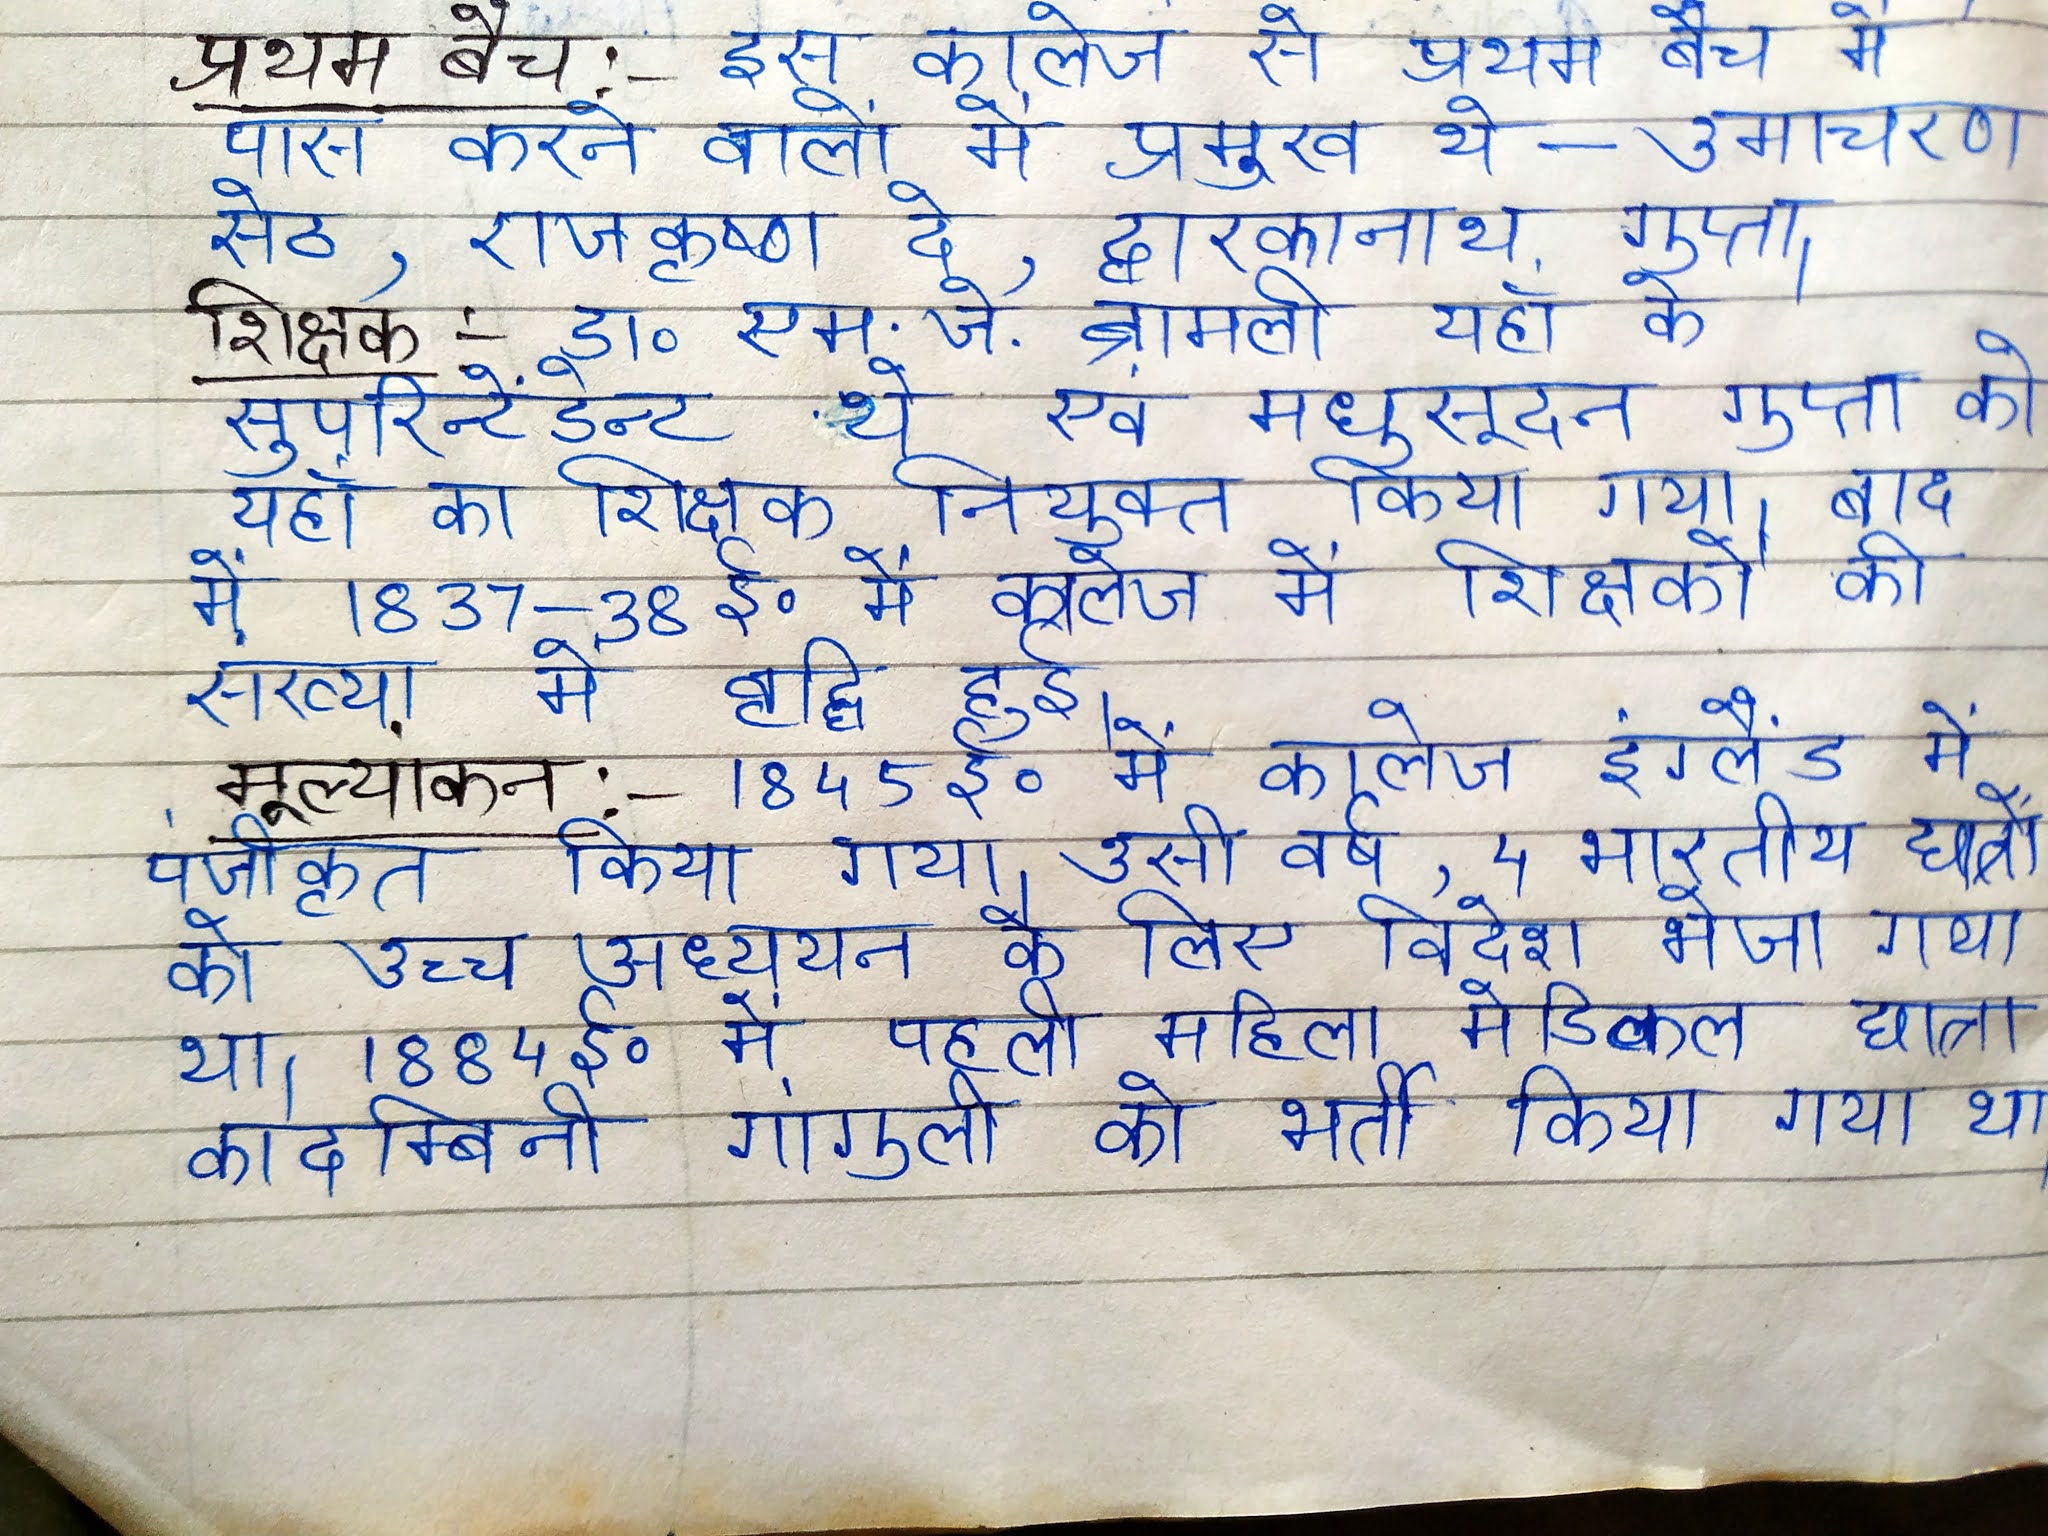 प्रथम बैच :- इस कालेज से प्रथम बैच में
पास करने वालों में प्रमुख थे - उमाचरण
सेठ, राजकृष्ण दे, द्वारकानाथ गुप्ता।
शिक्षक :- डा० एम. जे. ब्रामली यहाँ के
सुपरिन्टेंडेन्ट थे एवं मधुसूदन गुप्ता को
यहाँ का शिक्षक नियुक्त किया गया। बाद
में 1837-38 ई० में कालेज में शिक्षकों की
संख्या में वृद्धि हुई।
मूल्यांकन :- 1845 ई० में कालेज इंग्लैंड में
पंजीकृत किया गया। उसी वर्ष, 4 भारतीय छात्रों
को उच्च अध्ययन के लिए विदेश भेजा गया
था। 1884 ई० में पहली महिला मेडिकल छात्रा
कादम्बिनी गांगुली को भर्ती किया गया था।